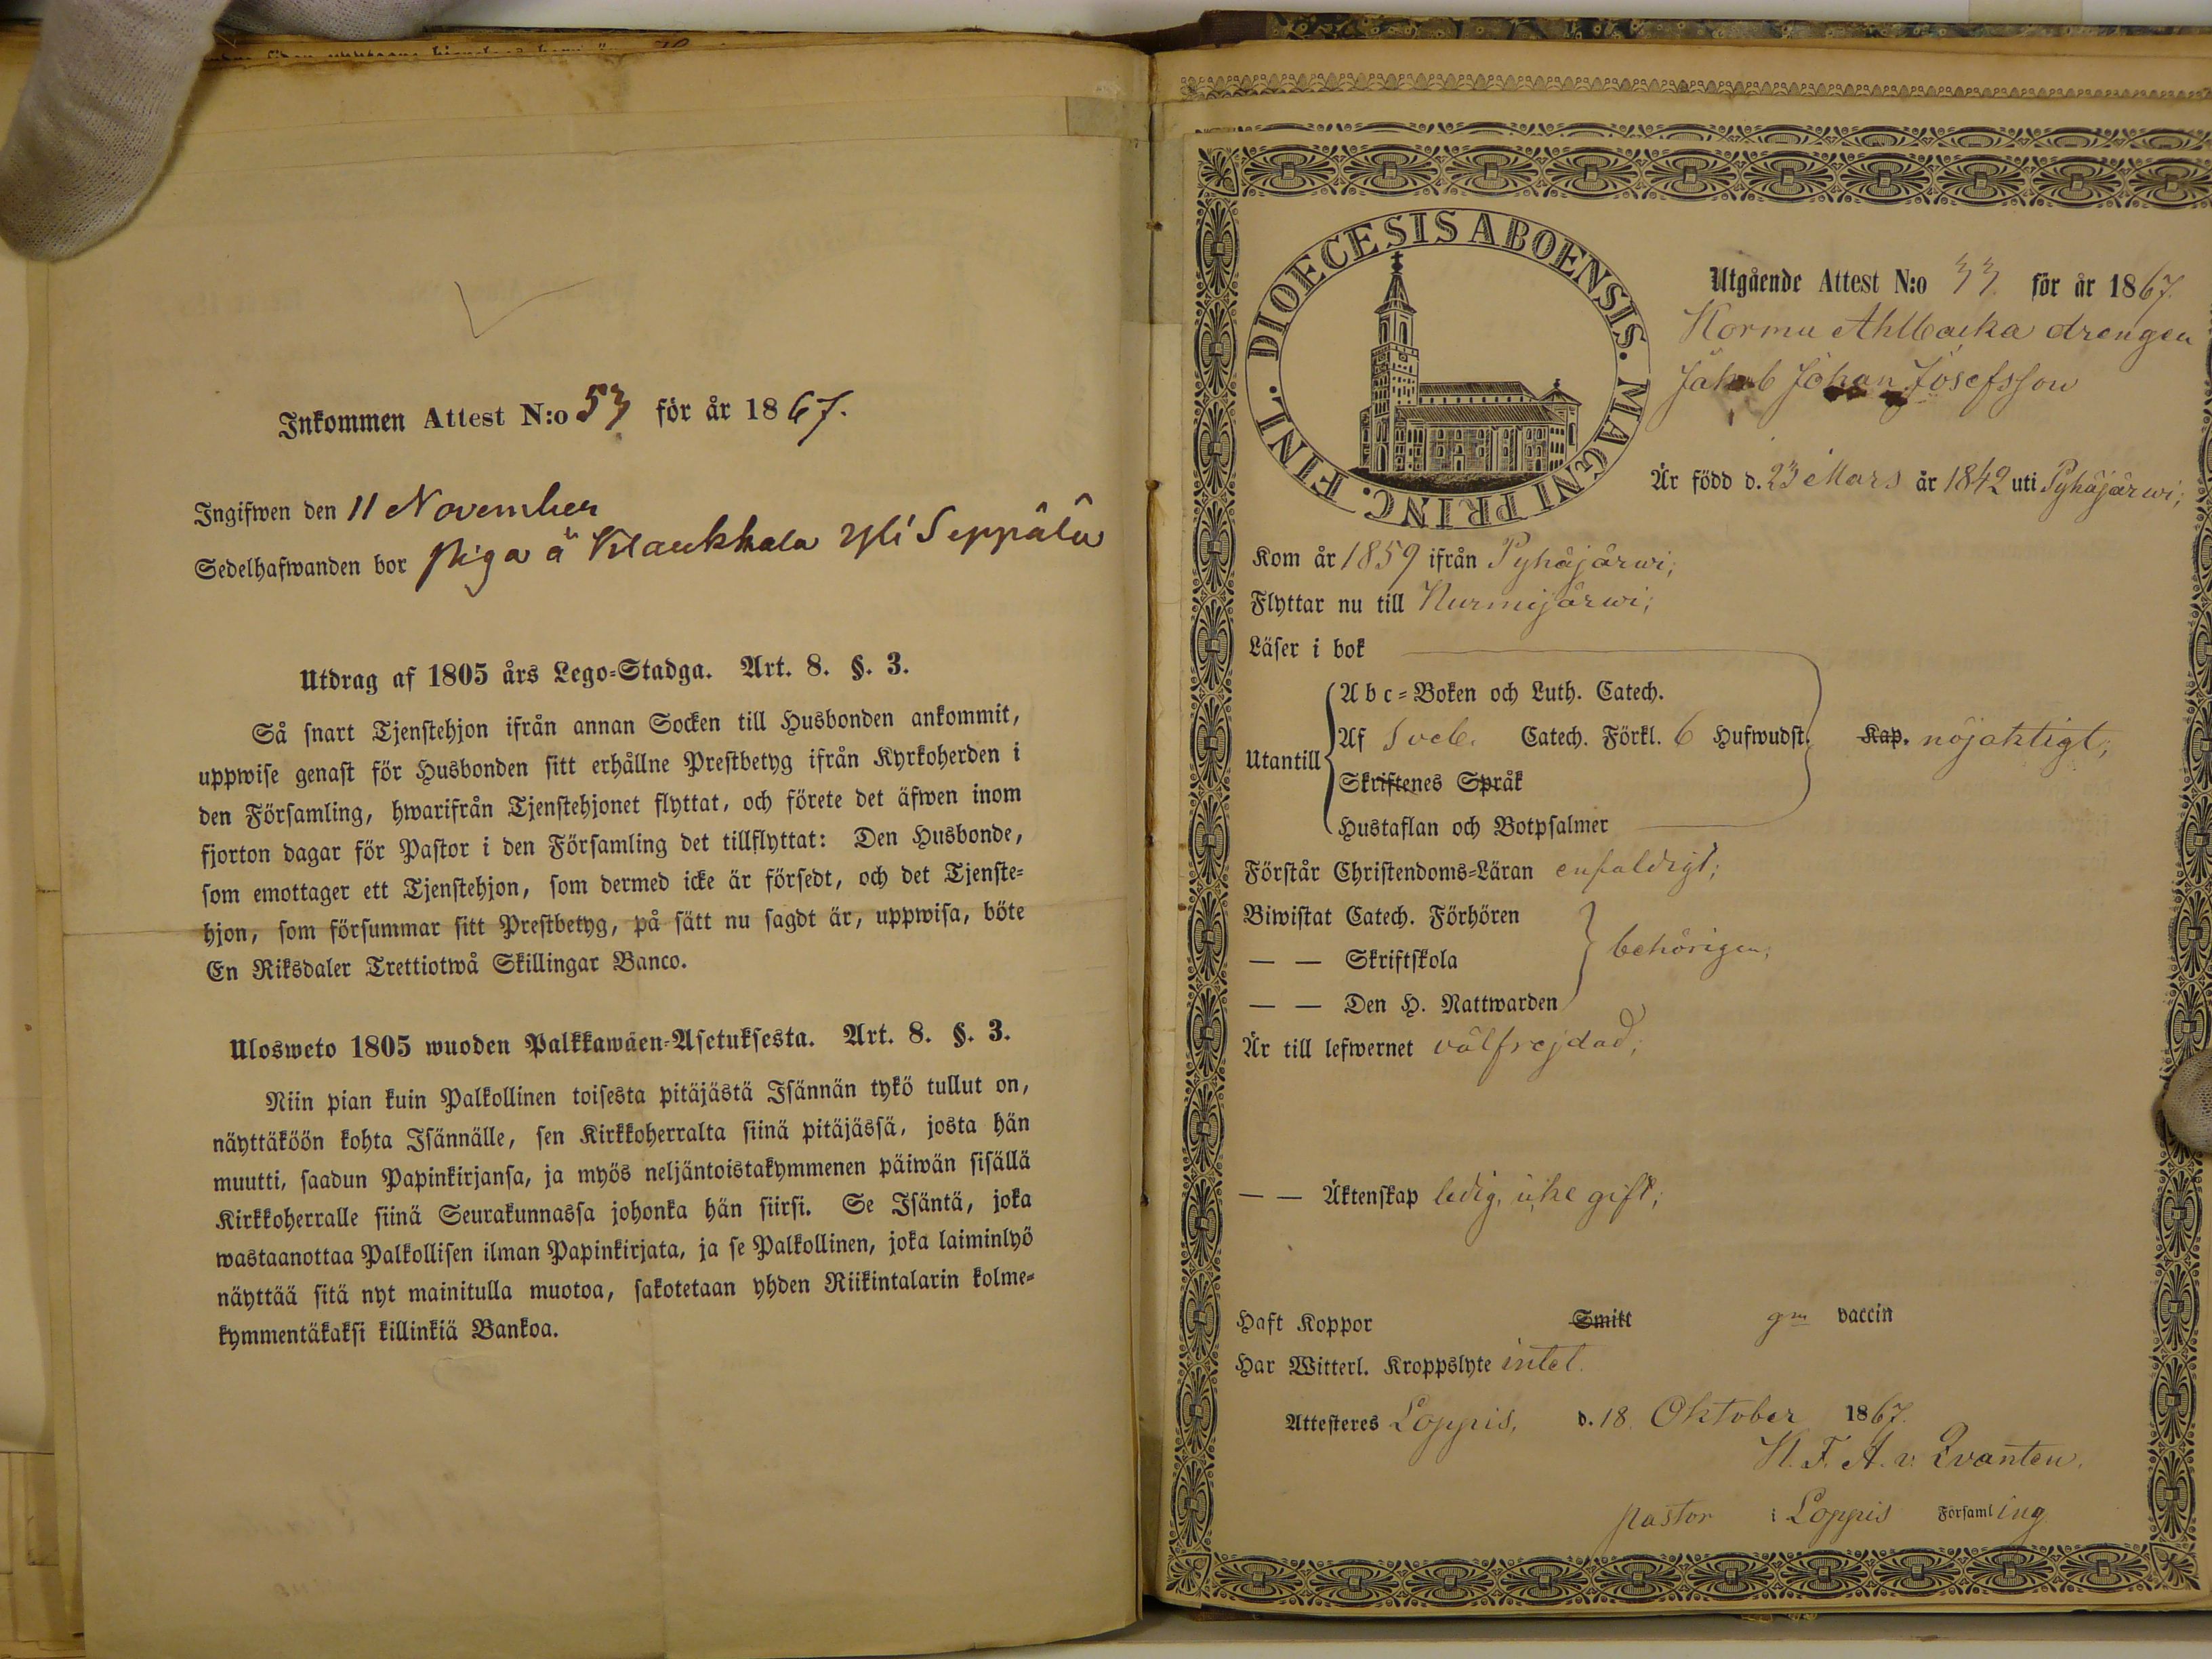 Inkommen Attest N:o 53 för år 1867.
Ingifwen den 11 November
Sedelhafwanden bor piga å Klaukkala Yli Seppälä
Utdrag af 1805 års Lego-Stadga. Art. 8. §. 3.
Så snart Tjenstehjon ifrån annan Socken till Husbonden ankommit,
uppwise genast för Husbonden sitt erhållne Prestbetyg ifrån Kyrkoherden i
den Församling, hwarifrån Tjenstehjonet flyttat, och förete det äfwen inom
fjorton dagar för Pastor i den Församling det tillflyttat: Den Husbonde,
som emottager ett Tjenstehjon, som dermed icke är försedt, och det Tjenste-
hjon, som försummar sitt Prestbetyg, på sätt nu sagdt är, uppwisa, böte
En Riksdaler Trettiotwå Skillingar Banco.
Ulosweto 1805 wuoden Palkkawäen-Asetuksesta. Art. 8. §. 3.
Niin pian kuin Palkollinen toisesta pitäjästä Isännän tykö tullut on,
näyttäköön kohta Isännälle, sen Kirkkoherralta siinä pitäjässä, josta hän
muutti, saadun Papinkirjansa, ja myös neljäntoistakymmenen päiwän sisällä
Kirkkoherralle siinä Seurakunnassa johonka hän siirsi. Se Isäntä, joka
wastaanottaa Palkollisen ilman Papinkirjata, ja se Palkollinen, joka laiminlyö
näyttää sitä nyt mainitulla muotoa, sakotetaan yhden Riikintalarin kolme-
kymmentäkaksi killinkiä Bankoa.
DIOECESIS ABOENSIS. MAGNI PRINC. FINL.
Utgående Attest N:o 33 för år 1867.
Kormu Ahlbacka drengen
Jakob Johan Josefsson
Är född d. 23 Mars år 1842 uti Pyhäjärwi;
Kom år 1859 ifrån Pyhäjärwi;
Flyttar nu till Nurmijärwi;
Läser i bok
Abc-Boken och Luth. Catech.
Utantill Af Sveb. Catech. Förkl. 6 Hufwudst. Kap. nöjaktigt;
Skriftenes Språk
Hustaflan och Botpsalmer
Förstår Christendoms-Läran enfaldigt;
Biwistat Catech. Förhören
— — Skriftskola behörigen;
— — Den H. Nattwarden
Är till lefwernet välfrejdad;
— — Äktenskap ledig, icke gift;
Haft Koppor Smitt gm vaccin
Har Witterl. Kroppslyte intet.
Attesteres Loppis, d. 18. Oktober 1867.
K. F. A. v. Qvanten.
pastor i Loppis Församling